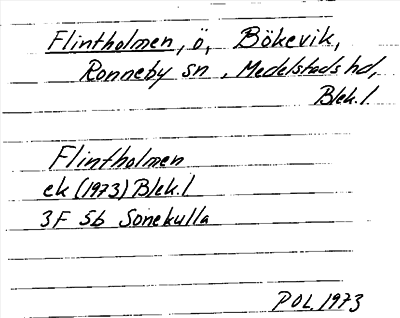 Flintholmen, ö, Bökevik,
Ronneby sn, Medelstads hd,
Blek.l
Flintholmen
ek (1973) Blek.l
3F 5b Sonekulla
POL 1973